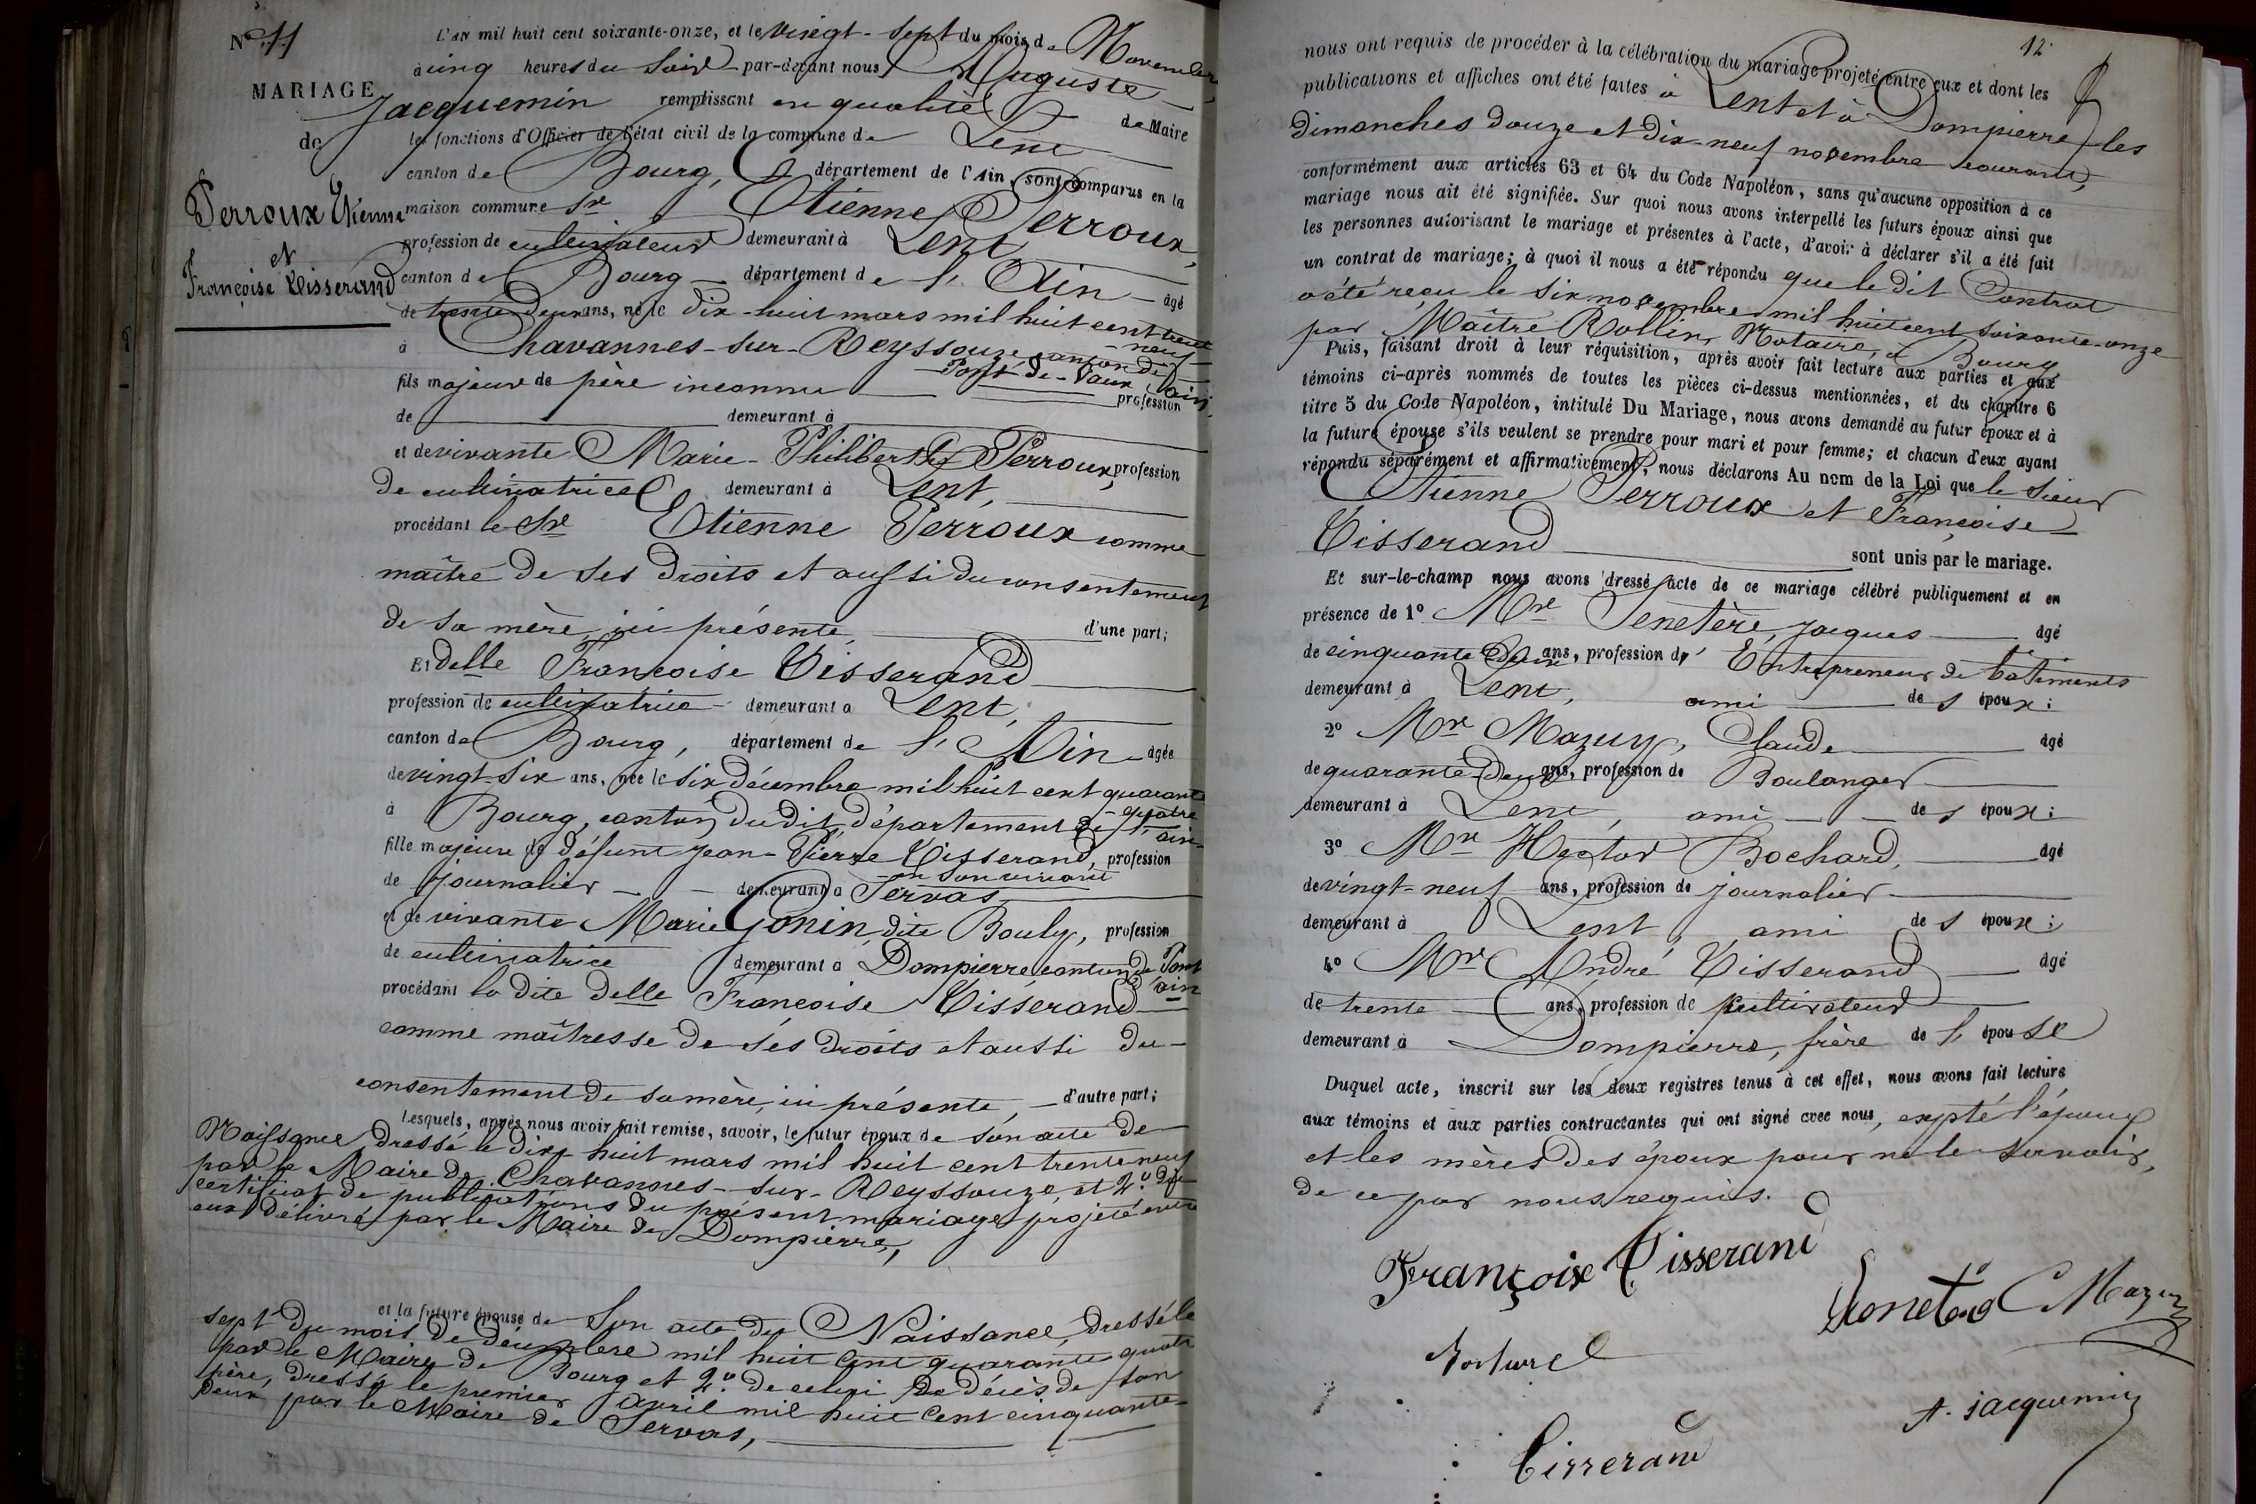 N° 11
MARIAGE
de
Perroux Etienne
et
Françoise Tisserand
L'an mil huit cent soixante-onze, et le vingt-sept du mois de Novembre,
à cinq heures du soir par-devant nous Auguste
Jacquemin remplissant en qualité de Maire
les fonctions d'Officier de l'état civil de la commune de Lent
canton de Bourg, département de l'Ain, sont comparus en la
maison commune Sr Etienne Perroux,
profession de cultivateur demeurant à Lent,
canton de Bourg département de l'Ain âgé
de trente-deux ans, né le dix-huit mars mil huit cent trente
-neuf
à Chavannes-sur-Reyssouze, canton de
Pont-de-Vaux, Ain,
fils majeur de père inconnu profession
de demeurant à
et de vivante Marie-Philiberte Perroux, profession
de cultivatrice demeurant à Lent,
procédant le Sr Etienne Perroux comme
maître de ses droits et aussi du consentement
de sa mère, ici présente, d'une part;
Et delle Françoise Tisserand
profession de cultivatrice demeurant à Lent,
canton de Bourg, département de l'Ain âgée
de vingt-six ans, née le six décembre mil huit cent quarante
-quatre
à Bourg, canton du dit, département de l'Ain
fille majeure de défunt Jean-Pierre Tisserand, profession
en son vivant
de journalier demeurant à Servas
et de vivante Marie Gonin dite Bouly, profession
de cultivatrice demeurant à Dompierre canton de Pont
d'Ain
procédant la dite delle Françoise Tisserand
comme maîtresse de ses droits et aussi du
consentement de sa mère, ici présente, d'autre part;
Lesquels, après nous avoir fait remise, savoir, le futur époux de son acte de
Naissance dressé le dix-huit mars mil huit cent trente neuf
par le Maire de Chavannes-sur-Reyssouze, et 2° du
certificat de publications du présent mariage projeté entre
eux délivré par le Maire de Dompierre,
et la future épouse de Son acte de Naissance, dressé le
sept du mois de décembre mil huit cent quarante quatre
par le Maire de Bourg et 2° de celui de décès de son
père, dressé le premier avril mil huit cent cinquante-
deux par le Maire de Servas,
12
nous ont requis de procéder à la célébration du mariage projeté entre eux et dont les
publications et affiches ont été faites à Lent et à Dompierre les
dimanches douze et dix-neuf novembre courant,
conformément aux articles 63 et 64 du Code Napoléon, sans qu'aucune opposition à ce
mariage nous ait été signifiée. Sur quoi nous avons interpellé les futurs époux ainsi que
les personnes autorisant le mariage et présentes à l'acte, d'avoir à déclarer s'il a été fait
un contrat de mariage; à quoi il nous a été répondu que le dit Contrat
a été reçu le six novembre mil huit cent soixante-onze
par Maître Rollin, Notaire, à Bourg
Puis, faisant droit à leur réquisition, après avoir fait lecture aux parties et aux
témoins ci-après nommés de toutes les pièces ci-dessus mentionnées, et du chapitre 6
titre 5 du Code Napoléon, intitulé Du Mariage, nous avons demandé au futur époux et à
la future épouse s'ils veulent se prendre pour mari et pour femme; et chacun d'eux ayant
répondu séparément et affirmativement, nous déclarons Au nom de la Loi que le Sieur
Etienne Perroux et Françoise
Tisserand sont unis par le mariage.
Et sur-le-champ nous avons dressé acte de ce mariage célébré publiquement et en
présence de 1° Mr Senetère, Jacques âgé
de cinquante deux ans, profession d' Entrepreneur de bâtiments
demeurant à Lent, ami des époux:
2° Mr Mazuy, Claude âgé
de quarante-deux ans, profession de Boulanger
demeurant à Lent, ami des époux:
3° Mr Hector Bochard, âgé
de vingt-neuf ans, profession de journalier
demeurant à Lent, ami des époux:
4° Mr André Tisserand âgé
de trente ans, profession de cultivateur
demeurant à Dompierre, frère de l'épouse
Duquel acte, inscrit sur les deux registres tenus à cet effet, nous avons fait lecture
aux témoins et aux parties contractantes qui ont signé avec nous, expté l'époux
et les mères des époux pour ne le savoir,
de ce par nous requis.
Françoise Tisserand
C Mazuy
A. Jacquemin
Tisserand